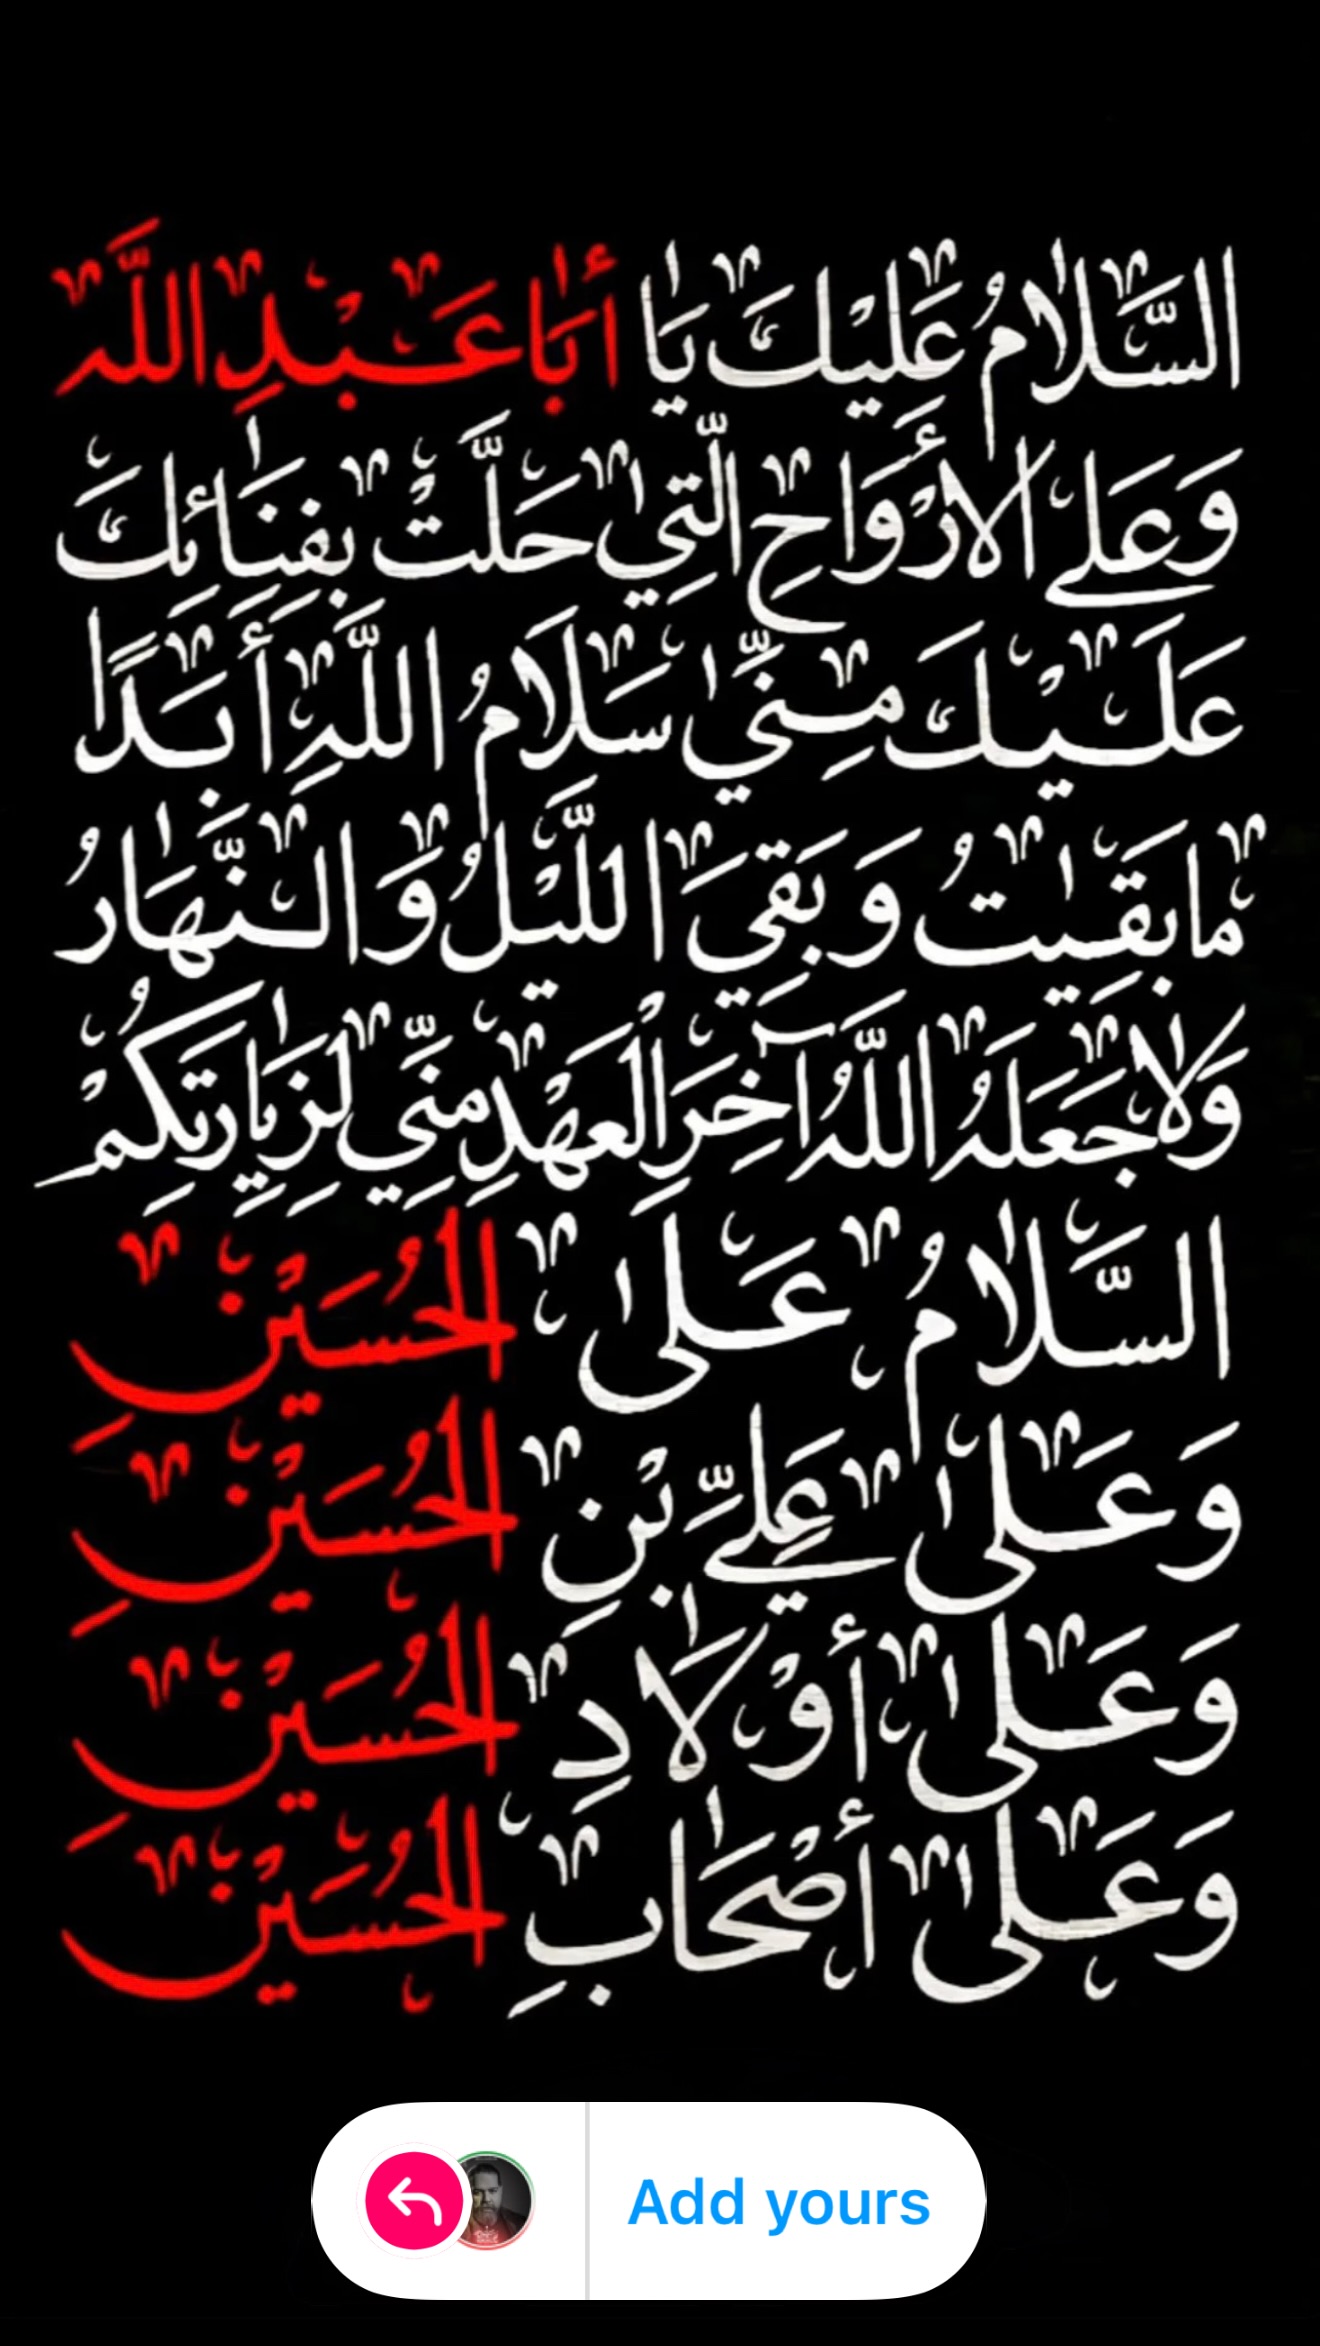 السَّلَامُ عَلَيْكَ يَا أَبَا عَبْدِ اللَّهِ
وَعَلَى الْأَرْوَاحِ الَّتِي حَلَّتْ بِفِنَائِكَ
عَلَيْكَ مِنِّي سَلَامُ اللَّهِ أَبَدًا
مَا بَقِيتُ وَبَقِيَ اللَّيْلُ وَالنَّهَارُ
وَلَا جَعَلَهُ اللَّهُ آخِرَ الْعَهْدِ مِنِّي لِزِيَارَتِكُمْ
السَّلَامُ عَلَى الْحُسَيْنِ
وَعَلَى عَلِيِّ بْنِ الْحُسَيْنِ
وَعَلَى أَوْلَادِ الْحُسَيْنِ
وَعَلَى أَصْحَابِ الْحُسَيْنِ
Add yours